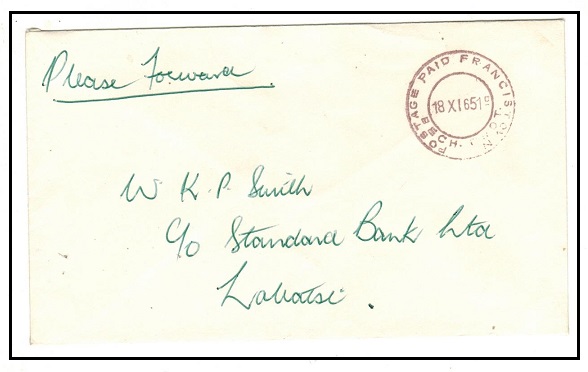 Please Forward.
POSTAGE PAID FRANCISTOWN
18 XI 65
BECH. PROT.
W K. P. Smith
c/o Standard Bank Ltd
Lobatsi.